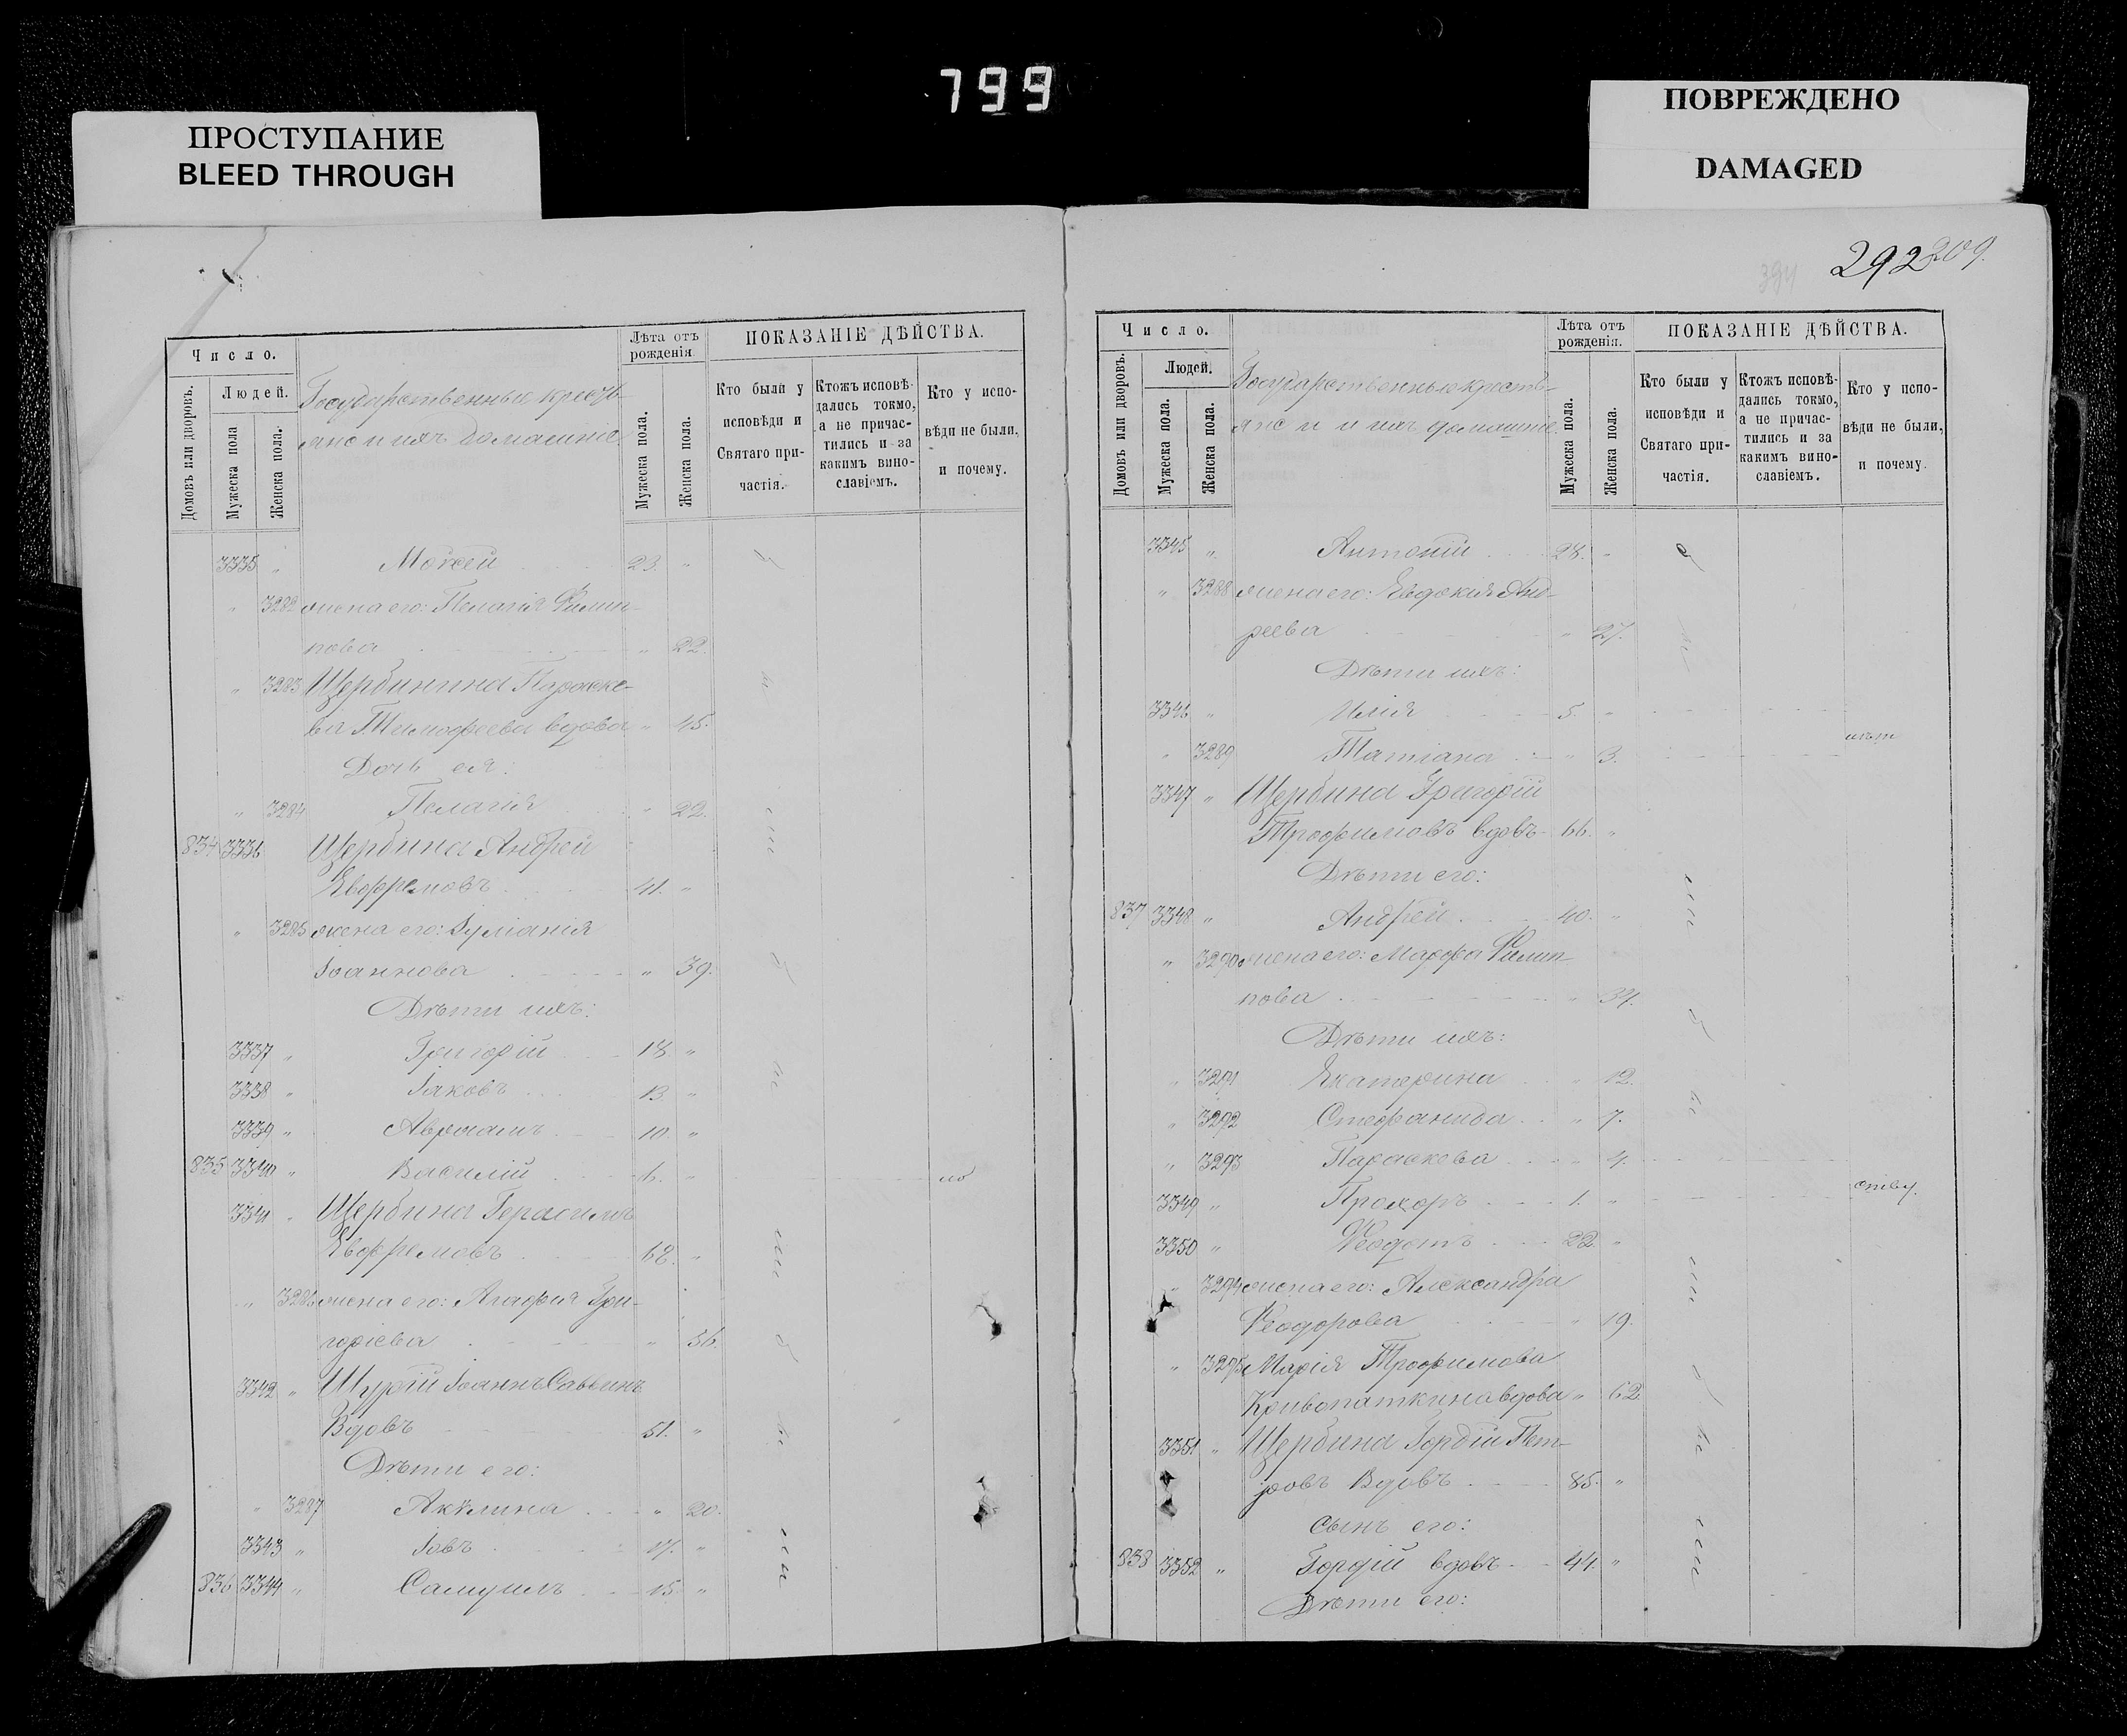 799
ПРОСТУПАНИЕ
BLEED THROUGH
ПОВРЕЖДЕНО
DAMAGED
Число.
Домовъ или дворовъ.
Людей.
Мужеска пола
Женска пола.
Государственные кресть-
яне и ихъ домашніе
Лѣта отъ
рожденія.
Мужеска пола.
Женска пола.
ПОКАЗАНІЕ ДѢЙСТВА.
Кто были у
исповѣди и
Святаго при-
частія.
Ктожъ исповѣ-
дались токмо,
а не причас-
тились и за
какимъ вино-
славіемъ.
Кто у испо-
вѣди не были,
и почему.
3335 " Моѵсей 23. "
" 3282 жена его: Пелагія Филип-
пова " 22.
" 3283 Щербинина Параске-
ва Тимофеева вдова " 45.
Дочь ея:
" 3284 Пелагія " 22.
834 3336 Щербина Андрей
Евфремовъ 41. "
" 3285 жена его: Іуліанія
Іоаннова " 39.
Дѣти ихъ:
3337 " Григорій 18 "
3338 " Іаковъ 13 "
3339 " Авраамъ 10. "
835 3340 " Василій 6. "
3341 " Щербина Герасимъ
Евфремовъ 62. "
" 3286 жена его: Агафія Гри-
горіева " 56.
3342 " Щурій Іоаннъ Саввинъ
Вдовъ 51. "
Дѣти его:
" 3287 Акѵлина " 20.
3343 " Іовъ 17. "
836 3344 " Самуилъ 15 "
292 209.
Число.
Домовъ или дворовъ.
Людей.
Мужеска пола.
Женска пола.
Государственные кресть-
яне и ихъ домашніе.
Лѣта отъ
рожденія.
Мужеска пола.
Женска пола.
ПОКАЗАНІЕ ДѢЙСТВА.
Кто были у
исповѣди и
Святаго при-
частія.
Ктожъ исповѣ-
дались токмо,
а не причас-
тились и за
какимъ вино-
славіемъ.
Кто у испо-
вѣди не были,
и почему.
3345 " Антоній 28. "
" 3288 жена его: Евдокія Анд-
реева " 27.
Дѣти ихъ:
3346 " Илія 5. "
" 3289 Татіана " 3.
3347 " Щербина Григорій
Трофимовъ вдовъ 66. "
Дѣти его:
837 3348 " Андрей 40. "
" 3290 жена его: Марфа Филип-
пова " 34.
Дѣти ихъ:
" 3291 Екатерина " 12.
" 3292 Стефанида " 7.
" 3293 Параскева " 4.
3349 " Прохоръ 1. "
3350 " Ѳеодотъ 22. "
" 3294 жена его: Александра
Ѳеодорова " 19.
" 3295 Марія Трофимова
Кривопаткина вдова " 62
3351 " Щербина Гордій Пет-
ровъ Вдовъ 85. "
Сынъ его:
838 3352 " Гордій вдовъ 44. "
Дѣти его: